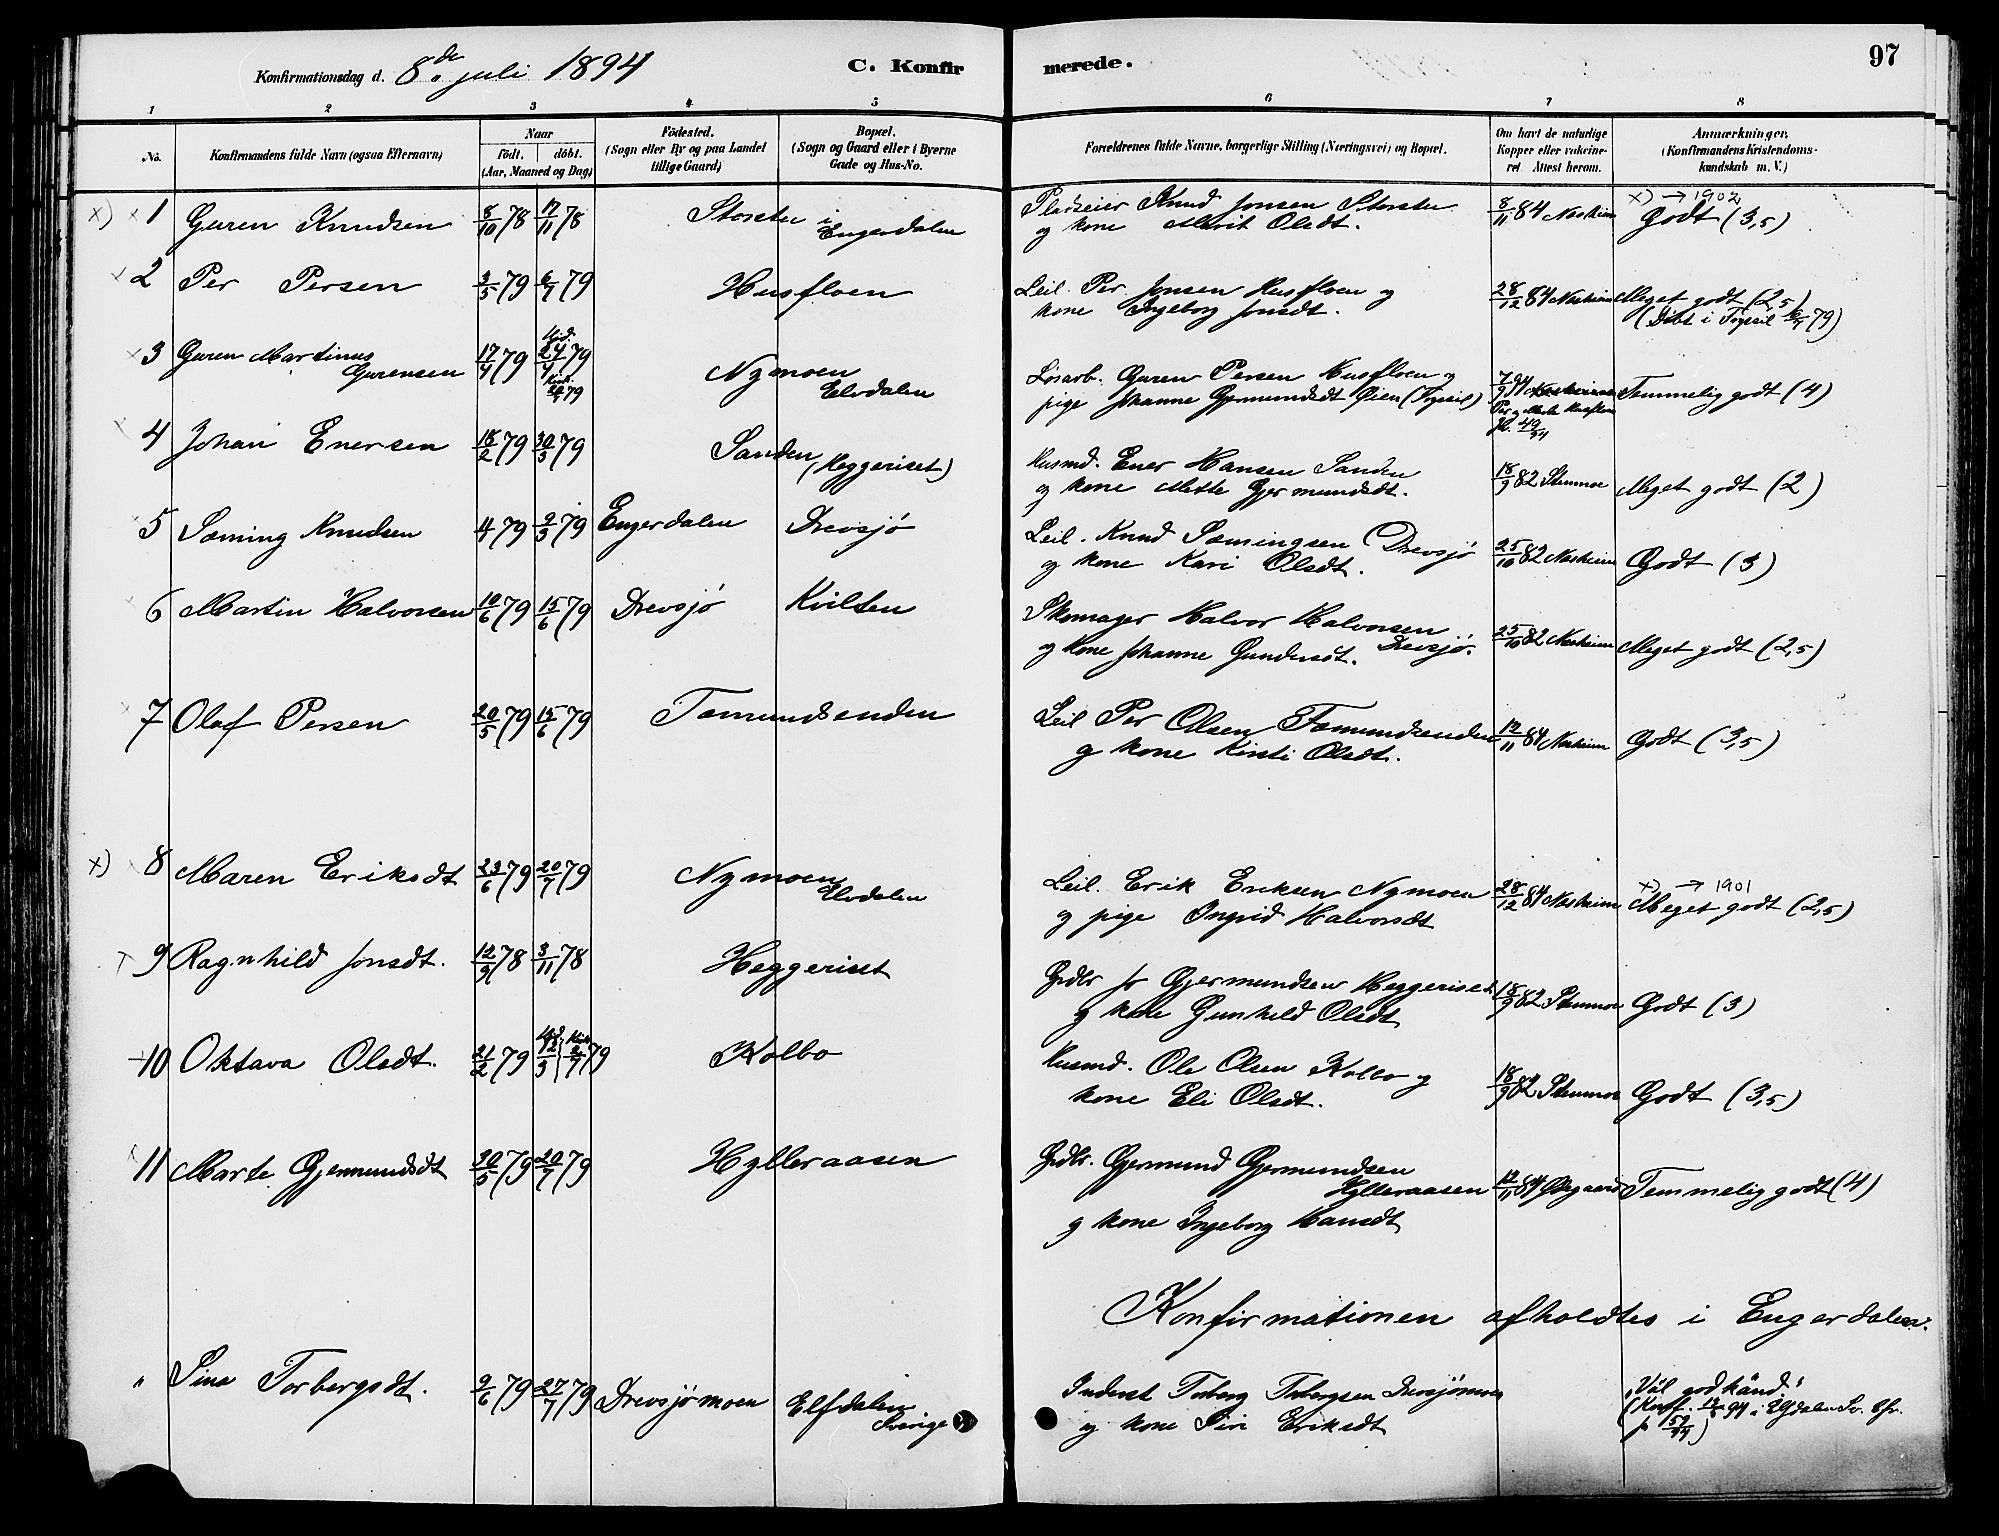 Konfirmationsdag d. 8.de juli 1894
C. Konfirmerede.
97
1 2 3 4 5 6 7 8
No.
Konfirmandens fulde Navn (ogsaa Efternavn)
Naar
födt. döbt.
(Aar, Maaned og Dag)
Födested.
(Sogn eller By og paa Landet
tillige Gaard)
Bopæl.
(Sogn og Gaard eller i Byerne
Gade og Hus-No.
Forældrenes fulde Navne, borgerlige Stilling (Næringsvei) og Bopæl.
Om havt de naturlige
Kopper eller vakcine-
ret Attest herom.
Anmærkninger.
(Konfirmandens Kristendoms-
kundskab m. V.)
x) x 1 Guren Knudsen 8/10 78 17/11 78 Storsten i
Engerdalen
Pladseier Knud Jonsen Storsten
og kone Marit Olsdt.
8/11 84 Nesheim
x) → 1902
Godt (3,5)
2 Per Persen 3/5 79 6/7 79 Husfloen
Leil. Per Jonsen Husfloen og
kone Ingeborg Jonsdt.
28/12 84 Nesheim
Meget godt (2,5)
(Döbt i Trysil 6/7 79)
3 Guren Martinus
Gurensen
17/4 79 24/4 79
Nymoen
Elvdalen
Lösarb. Guren Persen Husfloen og
pige Johanne Gjermundsdt Öien (Trysil)
Temmelig godt (4)
4 Johan Enersen 18/2 79 30/3 79 Sanden
(Heggeriset)
Husmd. Ener Hansen Sanden
og kone Mette Gjermundsdt.
18/9 82 Stenmoe
Meget godt (2)
5 Sæming Knudsen 4/ 79 2/3 79 Engerdalen Drevsjø
Leil. Knud Sæmingsen Drevsjø
og kone Kari Olsdt.
25/10 82 Nesheim
Godt (3)
6 Martin Halvorsen 10/6 79 15/6 79 Drevsjø Kvilten
Skomager Halvor Halvorsen,
Drevsjø.
og kone Johanne Gundersdt.
25/10 82 Nesheim
Meget godt (2,5)
7 Olaf Persen 20/5 79 15/6 79 Fæmundsenden
Leil Per Olsen Fæmundsenden
og kone Kirsti Olsdt.
12/11 84 Nesheim
Godt (3,5)
x) 8 Maren Eriksdt 23/6 79 20/7 79 Nymoen
Elvdalen
Leil. Erik Eriksen Nymoen
og pige Ingrid Halvorsdt
28/12 84 Nesheim
x) → 1901
Meget godt (2,5)
9 Ragnhild Jonsdt. 12/9 78 3/11 78 Heggeriset
Grdbr Jo Gjermundsen Heggeriset
og kone Gunhild Olsdt
18/9 82 Stenmoe
Godt (3)
10 Oktava Olsdt. 21/2 79 Kolbo
Husmd. Ole Olsen Kolbo og
kone Eli Olsdt.
18/9 82 Stenmoe
Godt (3,5)
11 Marte Gjermundsdt 30/5 79 20/7 79 Hylleraasen
Grdbr. Gjermund Gjermundsen
Hylleraasen
og kone Ingeborg Hansdt
12/11 84
Temmelig godt (4)
Konfirmationen afholdtes i Engerdalen.
" Sina Torbergsdt. 2/6 79 27/7 79 Drevsjømoen Elfdalen
Sverige
Inderst Torberg Torbergsen Drevsjømoen
og kone Siri Eriksdt
"Väl godkänd."